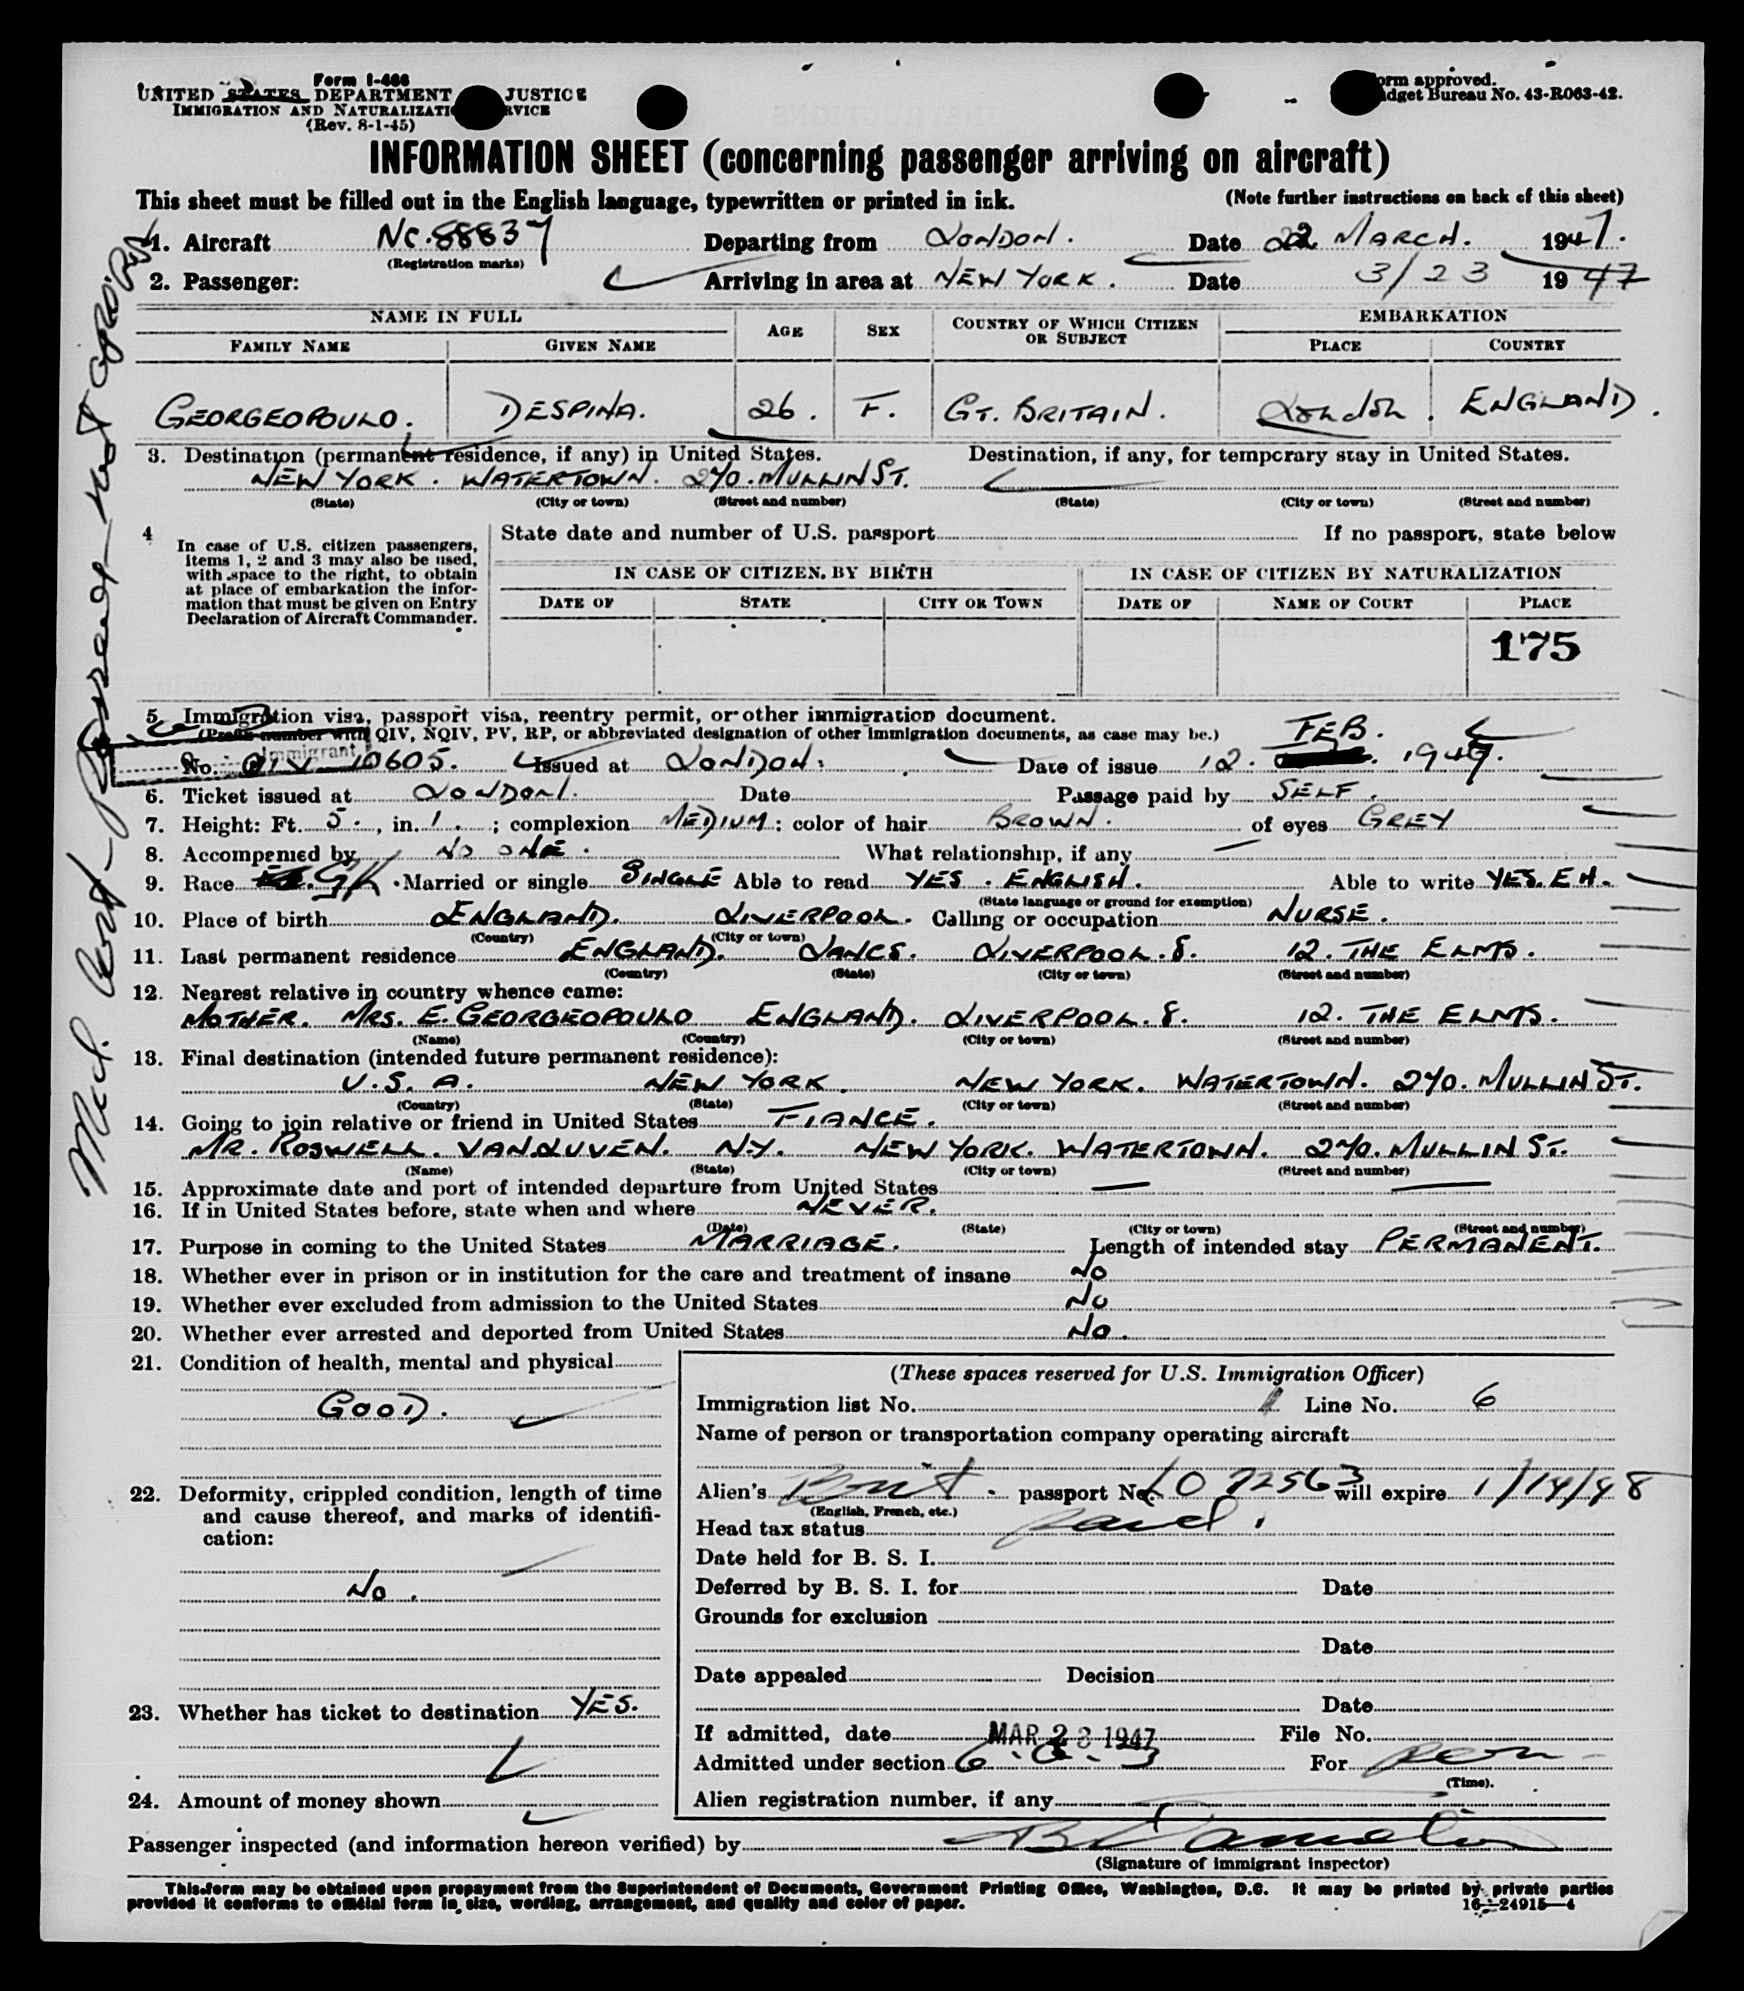 Form I-466
UNITED STATES DEPARTMENT JUSTICE
IMMIGRATION AND NATURALIZATI RVICE
(Rev. 8-1-45)
orm approved.
dget Bureau No. 43-R063-42.
INFORMATION SHEET (concerning passenger arriving on aircraft)
This sheet must be filled out in the English language, typewritten or printed in ink. (Note further instructions on back of this sheet)
1. Aircraft NC.88837 Departing from LONDON. Date 22 MARCH. 1947.
(Registration marks)
2. Passenger: Arriving in area at NEW YORK. Date 3/23 1947
NAME IN FULL AGE SEX COUNTRY OF WHICH CITIZEN OR SUBJECT EMBARKATION
FAMILY NAME GIVEN NAME PLACE COUNTRY
GEORGEOPOULO. DESPINA. 26. F. GT. BRITAIN. London. ENGLAND.
3. Destination (permanent residence, if any) in United States. Destination, if any, for temporary stay in United States.
NEW YORK. WATERTOWN. 270. MULLIN ST.
(State) (City or town) (Street and number) (State) (City or town) (Street and number)
4 In case of U.S. citizen passengers, items 1, 2 and 3 may also be used, with space to the right, to obtain at place of embarkation the information that must be given on Entry Declaration of Aircraft Commander.
State date and number of U.S. passport If no passport, state below
IN CASE OF CITIZEN, BY BIRTH IN CASE OF CITIZEN BY NATURALIZATION
DATE OF STATE CITY OR TOWN DATE OF NAME OF COURT PLACE
175
5. Immigration visa, passport visa, reentry permit, or other immigration document.
(Prefix number with QIV, NQIV, PV, RP, or abbreviated designation of other immigration documents, as case may be.) FEB.
Immigrant
No. QIV 10605. Issued at LONDON. Date of issue 12. 1947.
6. Ticket issued at LONDON. Date Passage paid by SELF.
7. Height: Ft. 5., in. 1.; complexion MEDIUM; color of hair BROWN. of eyes GREY
8. Accompanied by NO ONE. What relationship, if any —
9. Race GK. Married or single SINGLE Able to read YES. ENGLISH. Able to write YES. EH.
(State language or ground for exemption)
10. Place of birth ENGLAND. LIVERPOOL. Calling or occupation NURSE.
(Country) (City or town)
11. Last permanent residence ENGLAND. LANCS. LIVERPOOL. 8. 12. THE ELMS.
(Country) (State) (City or town) (Street and number)
12. Nearest relative in country whence came:
MOTHER. MRS. E. GEORGEOPOULO ENGLAND. LIVERPOOL. 8. 12. THE ELMS.
(Name) (Country) (City or town) (Street and number)
13. Final destination (intended future permanent residence):
U.S.A. NEW YORK. NEW YORK. WATERTOWN. 270. MULLIN ST.
(Country) (State) (City or town) (Street and number)
14. Going to join relative or friend in United States FIANCE.
MR. ROSWELL. VAN.LUVEN. N.Y. NEW YORK. WATERTOWN. 270. MULLIN ST.
(Name) (State) (City or town) (Street and number)
15. Approximate date and port of intended departure from United States — —
16. If in United States before, state when and where NEVER.
(Date) (State) (City or town) (Street and number)
17. Purpose in coming to the United States MARRIAGE. Length of intended stay PERMANENT.
18. Whether ever in prison or in institution for the care and treatment of insane NO
19. Whether ever excluded from admission to the United States NO
20. Whether ever arrested and deported from United States NO.
21. Condition of health, mental and physical
GOOD.
22. Deformity, crippled condition, length of time and cause thereof, and marks of identification:
NO.
23. Whether has ticket to destination YES.
24. Amount of money shown
(These spaces reserved for U.S. Immigration Officer)
Immigration list No. 1 Line No. 6
Name of person or transportation company operating aircraft
Alien's Brit. passport No. LO 72563 will expire 1/14/48
(English, French, etc.)
Head tax status Paid.
Date held for B. S. I.
Deferred by B. S. I. for Date
Grounds for exclusion
Date
Date appealed Decision
Date
If admitted, date MAR 23 1947 File No.
Admitted under section 6.a.3 For perm
(Time).
Alien registration number, if any
Passenger inspected (and information hereon verified) by
(Signature of immigrant inspector)
This form may be obtained upon prepayment from the Superintendent of Documents, Government Printing Office, Washington, D.C. It may be printed by private parties
provided it conforms to official form in size, wording, arrangement, and quality and color of paper. 16—24915—4
Med. Cert